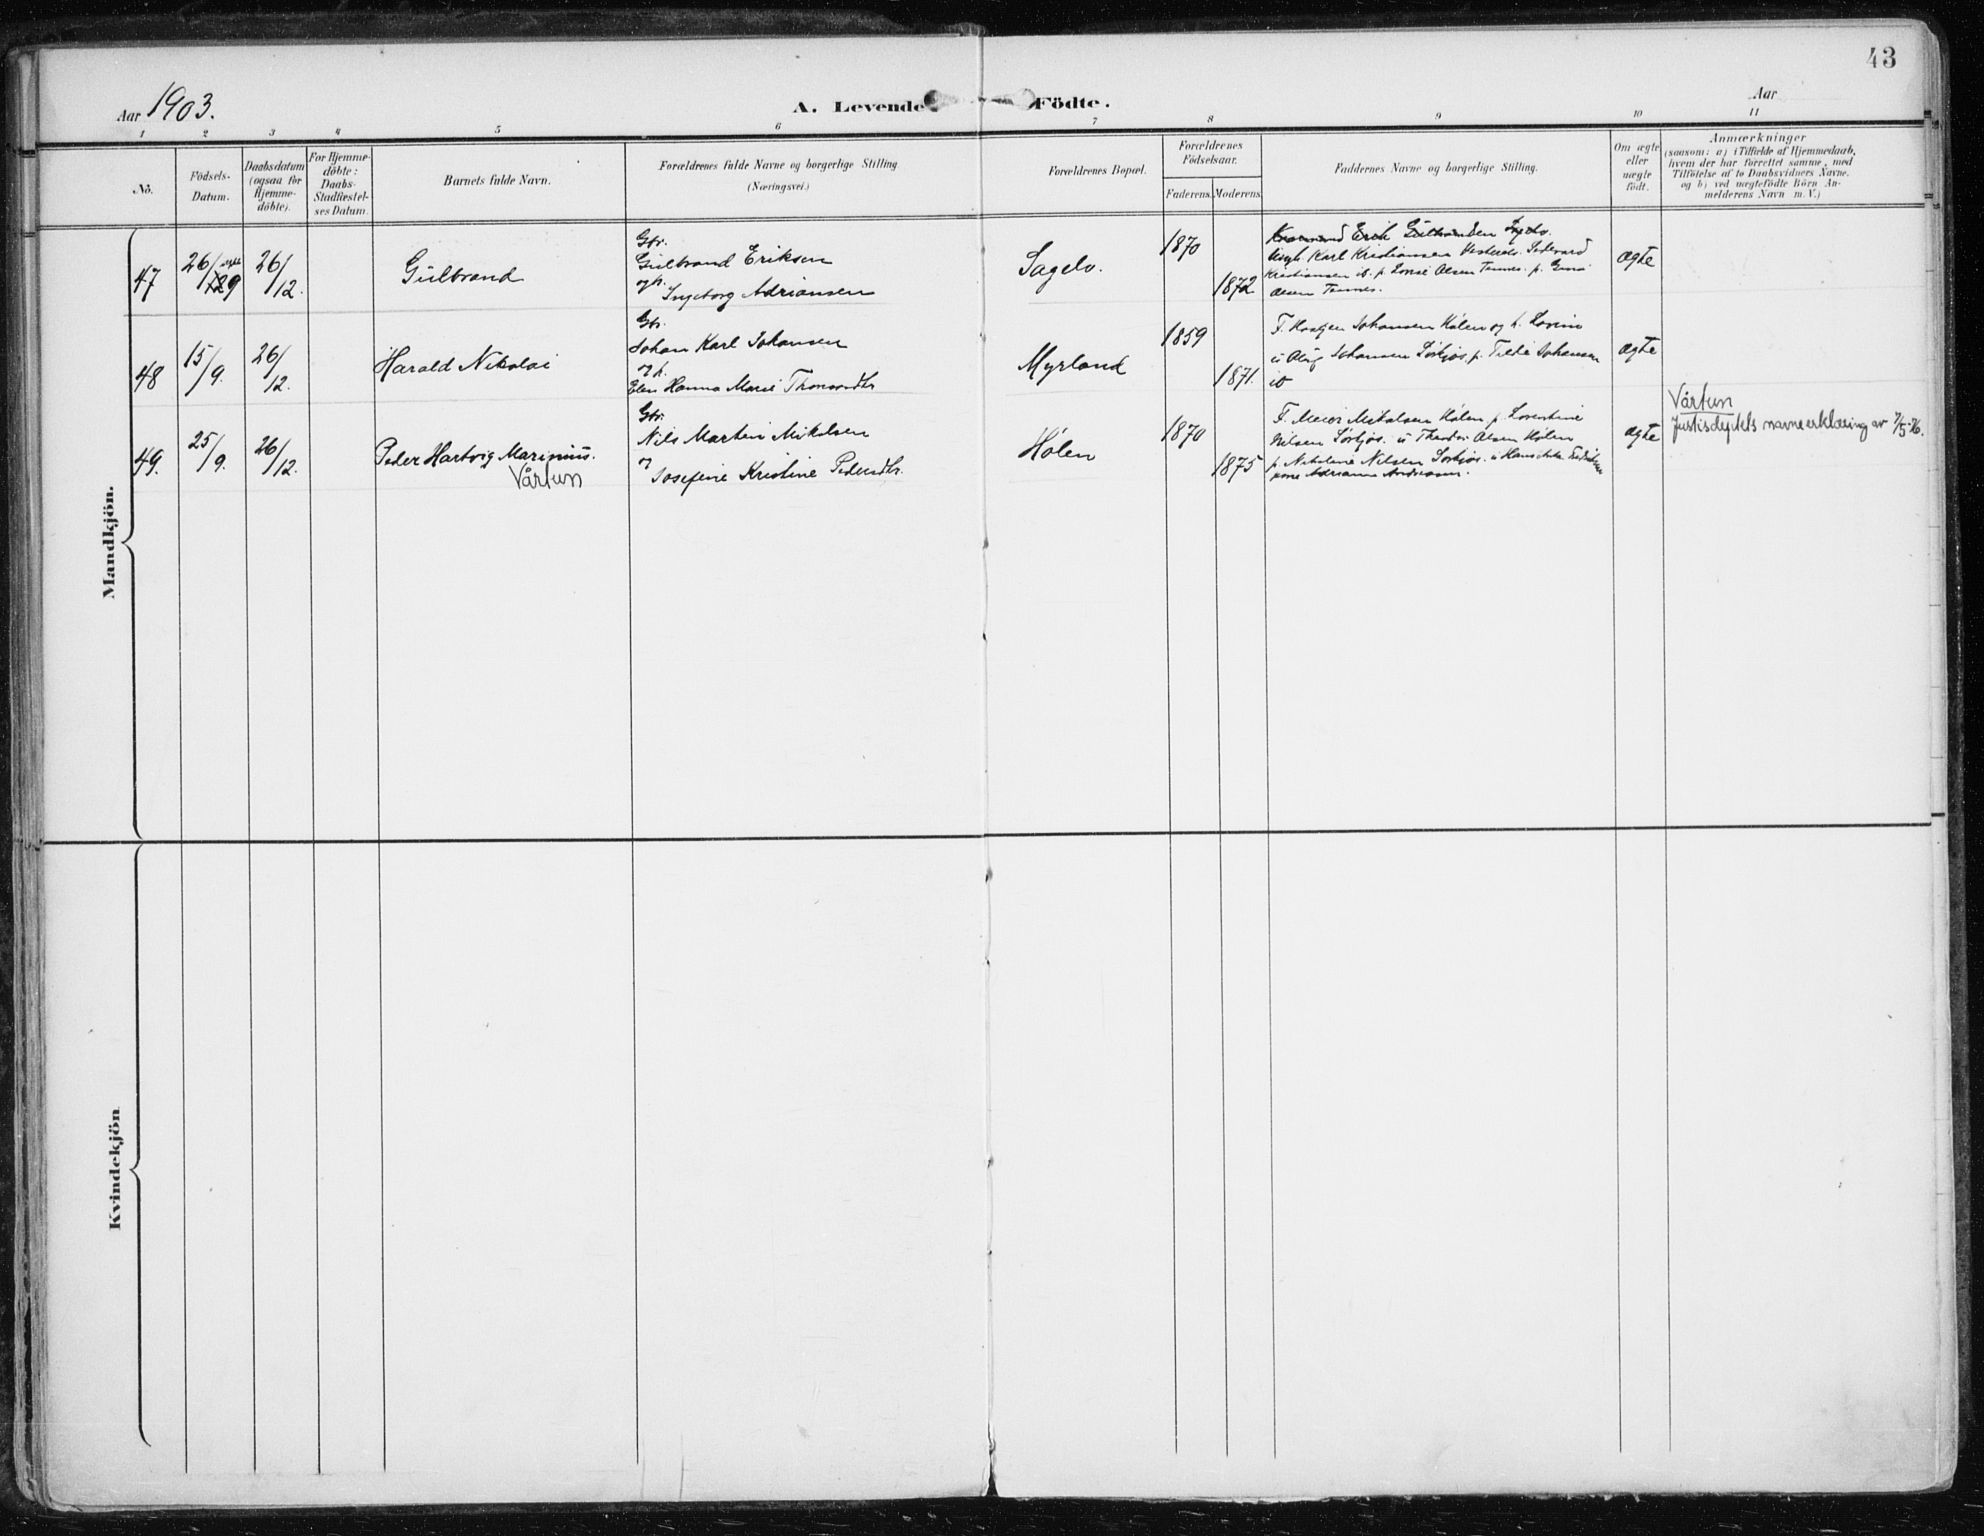 43
Aar 1903.
A. Levende Födte.
Aar
1 2 3 4 5 6 7 8 9 10 11
No.
Födsels-
Datum.
Daabsdatum
(ogsaa for
Hjemme-
döbte).
For Hjemme-
döbte:
Daabs-
Stadfæstel-
ses Datum.
Barnets fulde Navn.
Forældrenes fulde Navne og borgerlige Stilling
(Næringsvei.)
Forældrenes Bopæl.
Forældrenes
Födselsaar.
Faderens. Moderens.
Faddernes Navne og borgerlige Stilling.
Om ægte
eller
uægte
födt.
Anmærkninger
(saasom: a) i Tilfælde af Hjemmedaab,
hvem der har forrettet samme, med
Tilföielse af to Daabsvidners Navne.
og b) ved uægtefödte Börn An-
melderens Navn m. V.)
Mandkjön.
47
26/9
26/12.
Gulbrand
Gbr.
Gulbrand Eriksen
og h.
Ingeborg Adriansen
Sagelv.
1870
1872
Erik Gulbrandsen
Karl Kristiansen
Kristiansen ib. p. Olsen Tennes. p.
Olsen Tennes.
ægte
48
15/9.
26/12.
Harald Nikolai
Gbr.
Johan Karl Johansen
og h.
Elen Hanna Marie
Myrland
1859
1871.
F. Johansen Hølen og h.
Johansen Sørkjos. p. Johansen
ib
ægte
49.
25/9.
26/12.
Peder Hartvig Marinius.
Vårtun
Gbr.
Nils Martin Nikolsen
og
Josefine Kristine Pedersdtr.
Hølen
1870
1875
F. Meier Nikolsen Hølen p. Lorentine
Nilsen Sørkjos. u Theodor Olsen Hølen
p. Nikoline Nilsen Sørkjos.
kone Adriane Andreasen.
ægte
Vårtun
Justisdepts navneerklæring av 7/5-26.
Kvindekjön